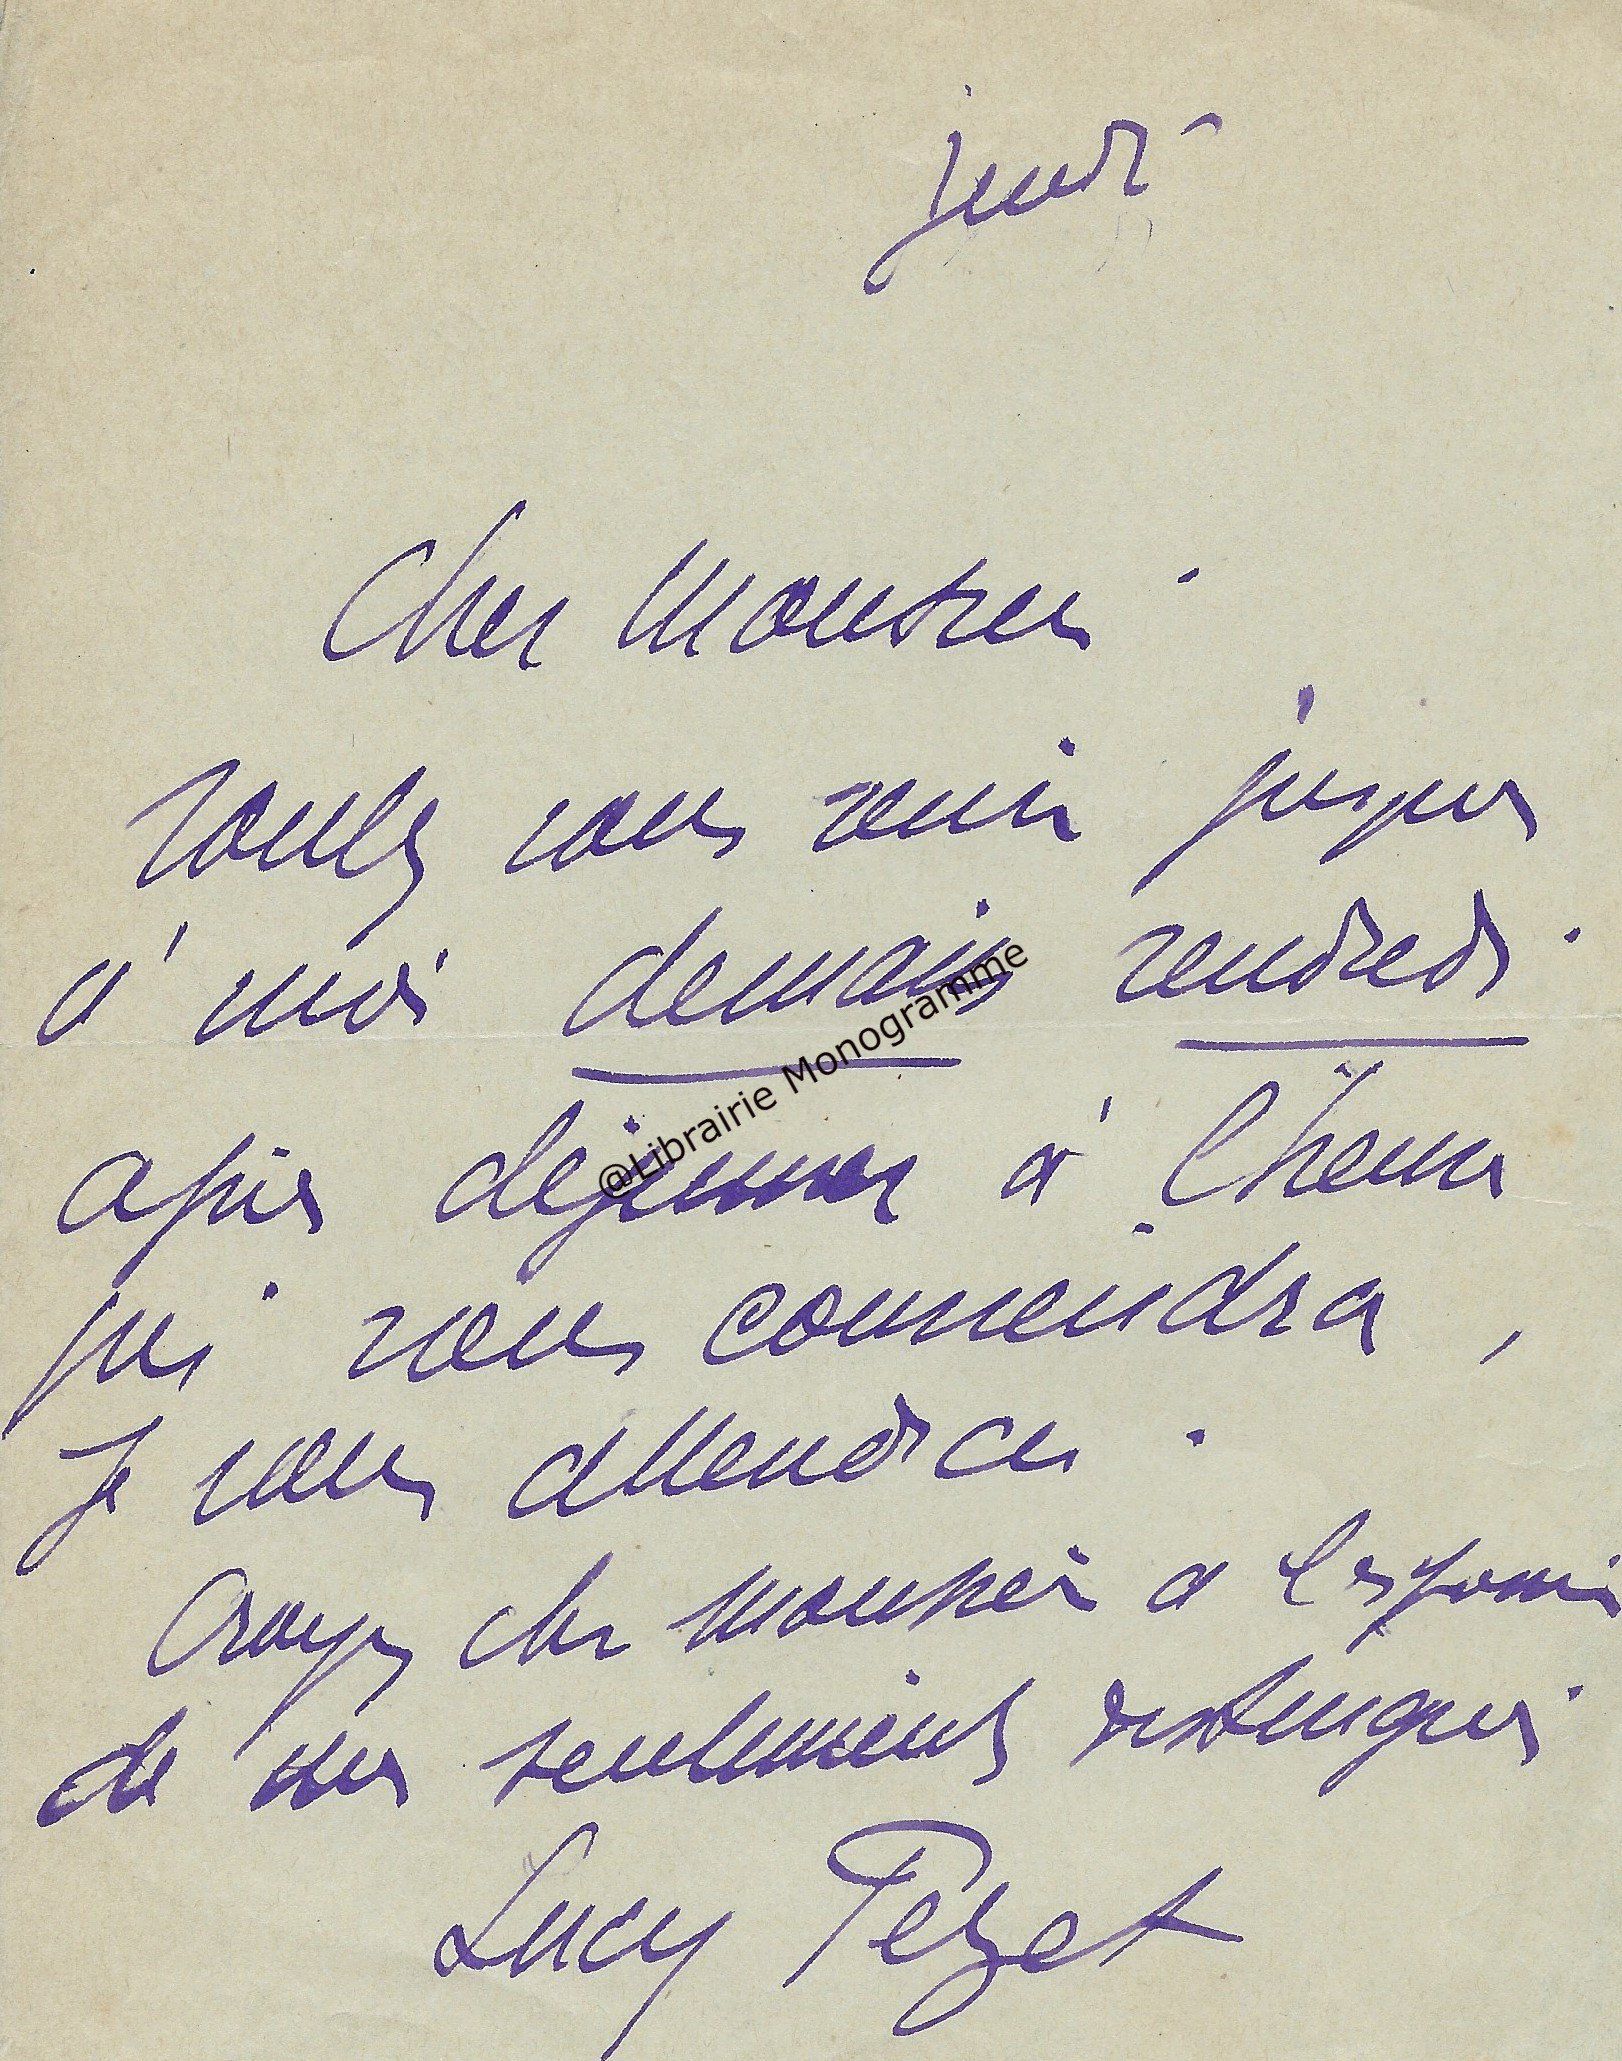 jeudi
Cher Monsieur
voulez vous venir jusques
à moi demain vendredi
après déjeuner à l'heure
qui vous conviendra,
je vous attendrai.
Croyez cher Monsieur à l'expression
de mes sentiments distingués
Lucy Pezet
@Librairie Monogramme